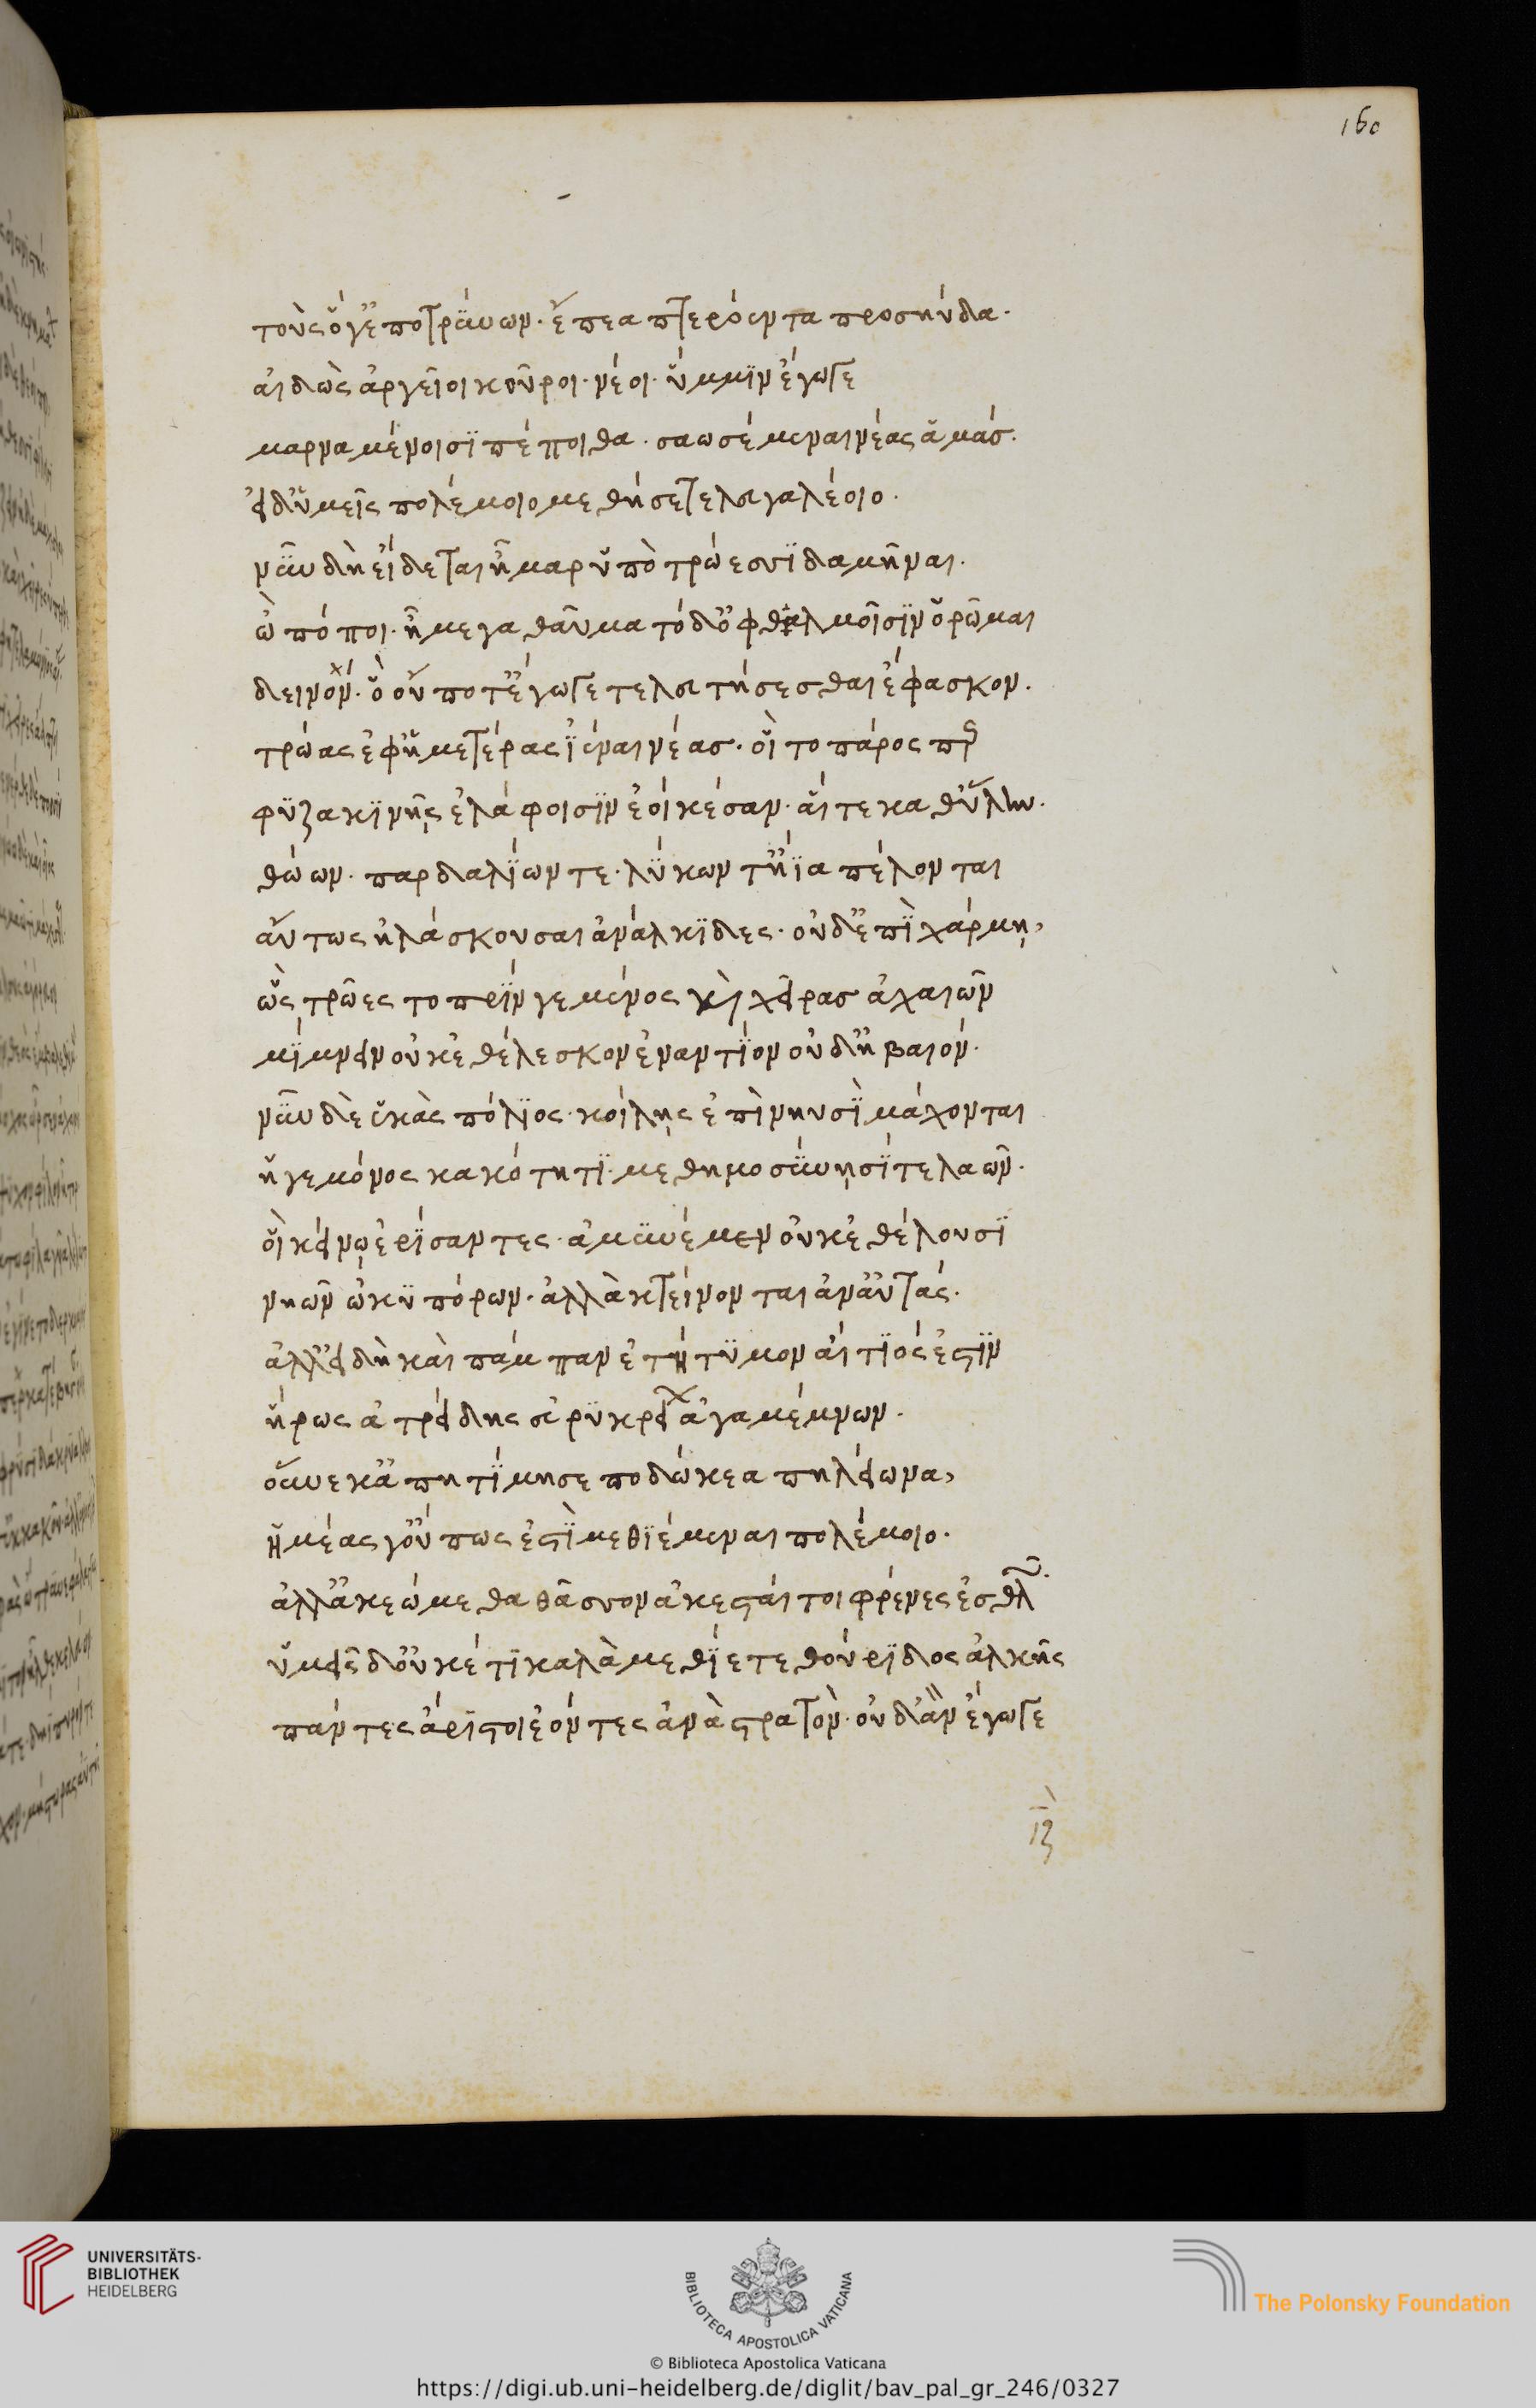 160
τοὺς ὅγ' ἐποτρύνων. ἔπεα πτερόεντα προσηύδα.
αἰδὼς ἀργεῖοι κοῦροι. νέοι. ὔμμιν ἔγωγε
μαρναμένοισι πέποιθα. σαωσέμεναι νέας ἁμάς.
εἰ δ' ὑμεῖς πολέμοιο μεθήσετε λευγαλέοιο.
νῦν δὴ εἴδεται ἦμαρ ὑπὸ τρώεσσι δαμῆναι.
ὢ πόποι. ἦ μεγα θαῦμα τόδ' ὀφθαλμοῖσιν ὁρῶμαι
δεινόν. ὃ οὔ ποτ' ἔγωγε τελευτήσεσθαι ἔφασκον.
τρώας ἐφ' ἡμετέρας ἰέναι νέας. οἳ το πάρος περ
φυζακινῇς ἐλάφοισιν ἐοίκεσαν. αἵ τε καθ' ὕλην.
θώων. παρδαλίων τε. λύκων τ' ἤια πέλονται
αὔτως ἠλάσκουσαι ἀνάλκιδες. οὐδ' ἔπι χάρμη,
ὣς τρῶες το πρίν γε μένος καὶ χεῖρας ἀχαιῶν
μίμνειν οὐκ ἐθέλεσκον ἐναντίον οὐδ' ἠβαιόν.
νῦν δὲ ἑκὰς πόλιος. κοίλῃς ἐπὶ νηυσὶ μάχονται
ἡγεμόνος κακότητι. μεθημοσύνῃσί τε λαῶν.
οἳ κείνῳ ἐρίσαντες. ἀμυνέμεν οὐκ ἐθέλουσι
νηῶν ὠκυπόρων. ἀλλὰ κτείνονται ἀν' αὐτάς.
ἀλλ' εἰ δὴ καὶ πάμπαν ἐτήτυμον αἴτιός ἐστιν
ἥρως ἀτρείδης εὐρυκρείων ἀγαμέμνων.
οὕνεκ' ἀπητίμησε ποδώκεα πηλείωνα,
ἡμέας γ' οὔ πως ἔστι μεθιέμεναι πολέμοιο.
ἀλλ' ἀκεώμεθα θᾶσσον ἀκεσταί τοι φρένες ἐσθλῶν.
ὑμεῖς δ' οὐκέτι καλὰ μεθίετε θούριδος ἀλκῆς
πάντες ἄριστοι ἐόντες ἀνὰ στρατόν. οὐδ' ἂν ἔγωγε
ιζ
UNIVERSITÄTS-
BIBLIOTHEK
HEIDELBERG
BIBLIOTECA APOSTOLICA VATICANA
The Polonsky Foundation
© Biblioteca Apostolica Vaticana
https://digi.ub.uni-heidelberg.de/diglit/bav_pal_gr_246/0327